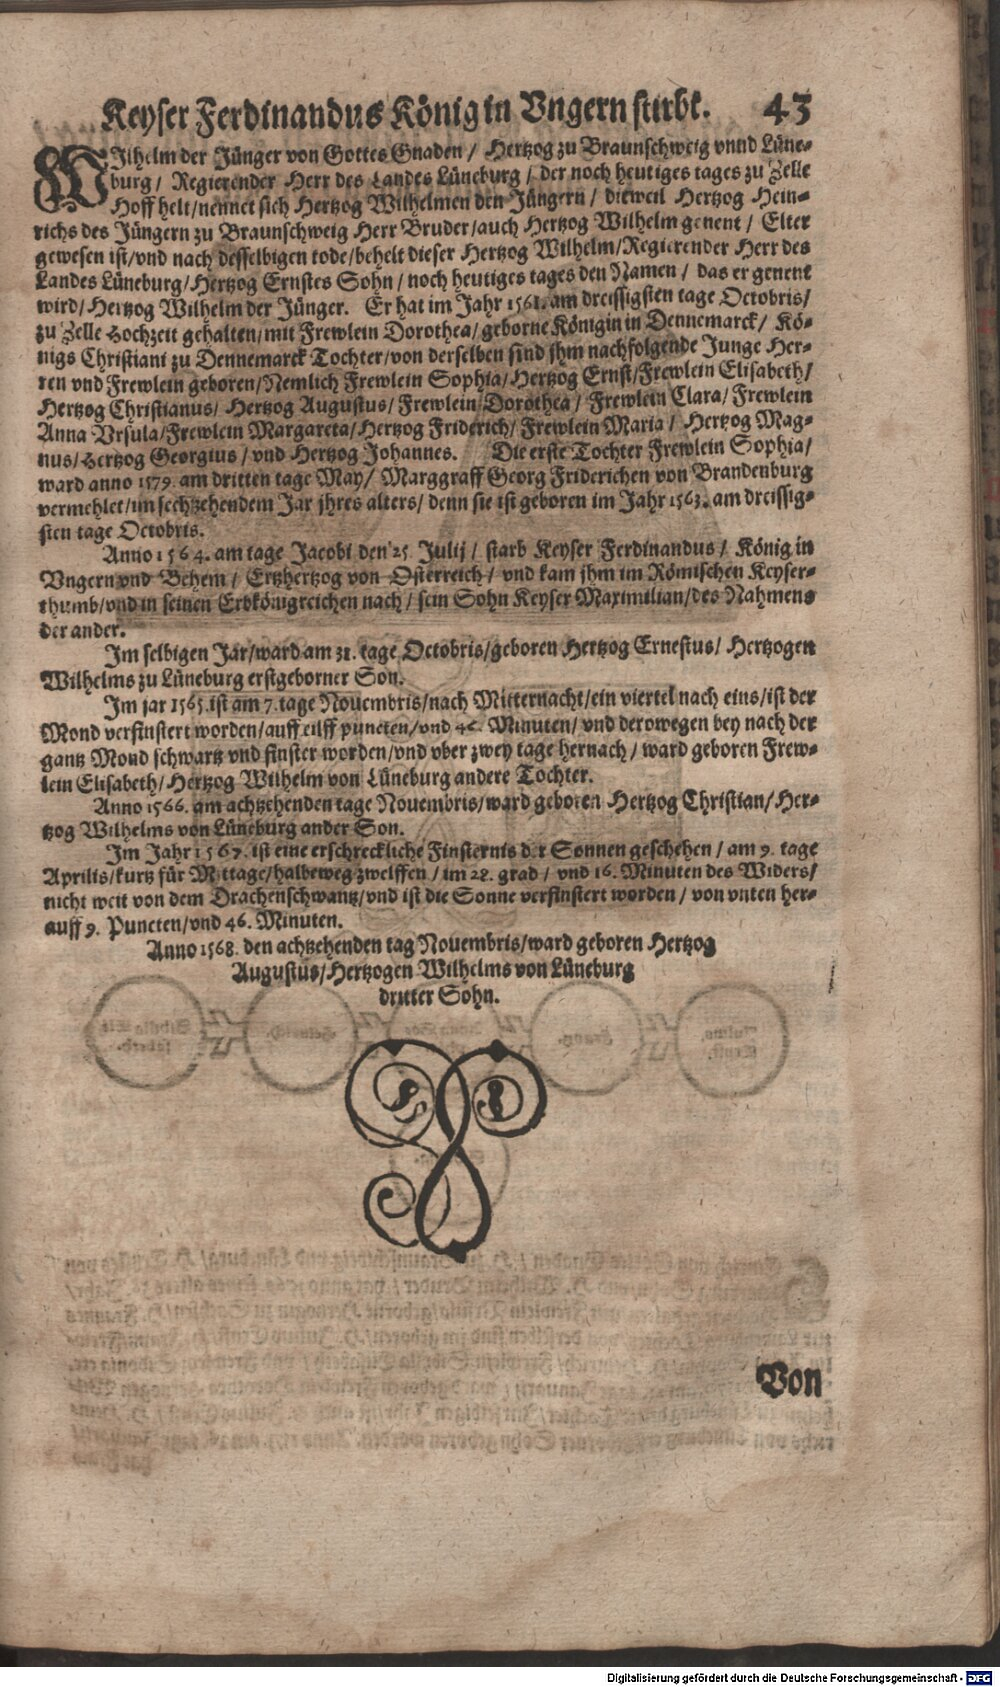 Keyser Ferdinandus König in Vngern stirbt. 43
WJlhelm der Jünger von Gottes Gnaden / Hertzog zu Braunschweig vnnd Lüne-
burg / Regierender Herr des Landes Lüneburg / der noch heutiges tages zu Zelle
Hoff helt/nennet sich Hertzog Wilhelmen den Jüngern / dieweil Hertzog Hein-
richs des Jüngern zu Braunschweig Herr Bruder/auch Hertzog Wilhelm genent / Elter
gewesen ist/vnd nach desselbigen tode/behelt dieser Hertzog Wilhelm/Regierender Herr des
Landes Lüneburg/Hertzog Ernstes Sohn / noch heutiges tages den Namen / das er genent
wird/Hertzog Wilhelm der Jünger. Er hat im Jahr 1561. am dreissigsten tage Octobris/
zu Zelle Hochzeit gehalten/mit Frewlein Dorothea/geborne Königin in Dennemarck/ Kö-
nigs Christiani zu Dennemarck Tochter/von derselben sind jhm nachfolgende Junge Her-
ren vnd Frewlein geboren/Nemlich Frewlein Sophia/Hertzog Ernst/Frewlein Elisabeth/
Hertzog Christianus/ Hertzog Augustus/Frewlein Dorothea / Frewlein Clara/ Frewlein
Anna Vrsula/Frewlein Margareta/Hertzog Friderich/ Frewlein Maria / Hertzog Mag-
nus/Hertzog Georgius / vnd Hertzog Johannes. Die erste Tochter Frewlein Sophia/
ward anno 1579. am dritten tage May/ Marggraff Georg Friderichen von Brandenburg
vermehlet/im sechtzehendem Jar jhres alters/ denn sie ist geboren im Jahr 1563. am dreissig-
sten tage Octobris.
Anno 1564. am tage Jacobi den 25 Julij / starb Keyser Ferdinandus / König in
Vngern vnd Behem / Ertzhertzog von Osterreich / vnd kam jhm im Römischen Keyser-
thumb/vnd in seinen Erbkönigreichen nach / sein Sohn Keyser Maximilian/des Nahmens
der ander.
Im selbigen Jar/ward am 31. tage Octobris/geboren Hertzog Ernestus/ Hertzogen
Wilhelms zu Lüneburg erstgeborner Son.
Im jar 1565. ist am 7. tage Nouembris/nach Mitternacht/ein viertel nach eins/ist der
Mond verfinstert worden/auff eilff puncten/vnd 46. Minuten/ vnd derowegen bey nach der
gantz Mond schwartz vnd finster worden/vnd vber zwey tage hernach / ward geboren Frew-
lein Elisabeth/Hertzog Wilhelm von Lüneburg andere Tochter.
Anno 1566. am achtzehenden tage Nouembris/ward geboren Hertzog Christian/Her-
tzog Wilhelms von Lüneburg ander Son.
Im Jahr 1567. ist eine erschreckliche Finsternis der Sonnen geschehen / am 9. tage
Aprilis/kurtz für Mittage/halbeweg zwelffen / im 28. grad / vnd 16. Minuten des Widers/
nicht weit von dem Drachenschwantz/vnd ist die Sonne verfinstert worden / von vnten her-
auff 9. Puncten/vnd 46. Minuten.
Anno 1568. den achtzehenden tag Nouembris/ward geboren Hertzog
Augustus/Hertzogen Wilhelms von Lüneburg
dritter Sohn.
Von
Digitalisierung gefördert durch die Deutsche Forschungsgemeinschaft - DFG